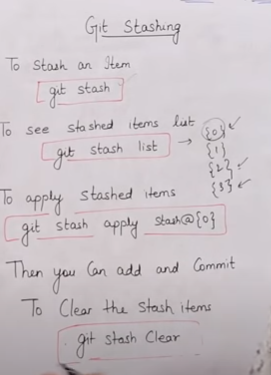 Git Stashing
To stash an Item
git stash
To see stashed items list
git stash list → {0}
{1}
{2}
{3}
To apply stashed items
git stash apply stash@{0}
Then you Can add and Commit
To Clear the stash items
git stash Clear